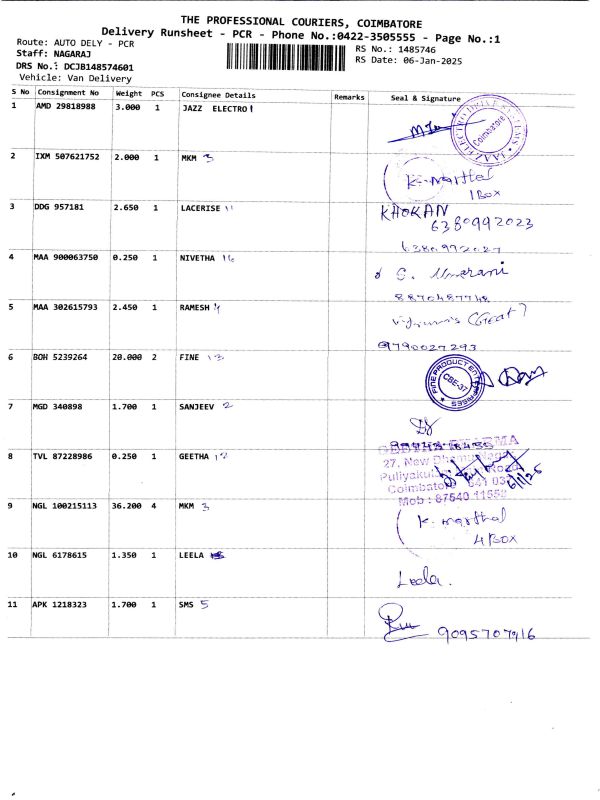 THE PROFESSIONAL COURIERS, COIMBATORE
Delivery Runsheet - PCR - Phone No.:0422-3505555 - Page No.:1
Route: AUTO DELY - PCR
RS No.: 1485746
Staff: NAGARAJ
RS Date: 06-Jan-2025
DRS No.: DCJB148574601
Vehicle: Van Delivery
S No Consignment No Weight PCS Consignee Details Remarks Seal & Signature
1 AMD 29818988 3.000 1 JAZZ ELECTRO 1
Coimbatore
2 IXM 507621752 2.000 1 MKM 3
K. marthal
1 Box
3 DDG 957181 2.650 1 LACERISE 11
KHOKAN
6380992023
6380992027
4 MAA 900063750 0.250 1 NIVETHA 16
8870487748
5 MAA 302615793 2.450 1 RAMESH 4
9790027293
6 BOH 5239264 20.000 2 FINE 13
FINE PRODUCT ENTERPRISES
CBE-37
7 MGD 340898 1.700 1 SANJEEV 2
8 TVL 87228986 0.250 1 GEETHA 12
GEETHA PHARMA
27, New
Puliyakul Road
Coimbatore 641 03
Mob : 87540 11552
6/1/25
9 NGL 100215113 36.200 4 MKM 3
K. marthal
4 Box
10 NGL 6178615 1.350 1 LEELA
Leela.
11 APK 1218323 1.700 1 SMS 5
9095707916